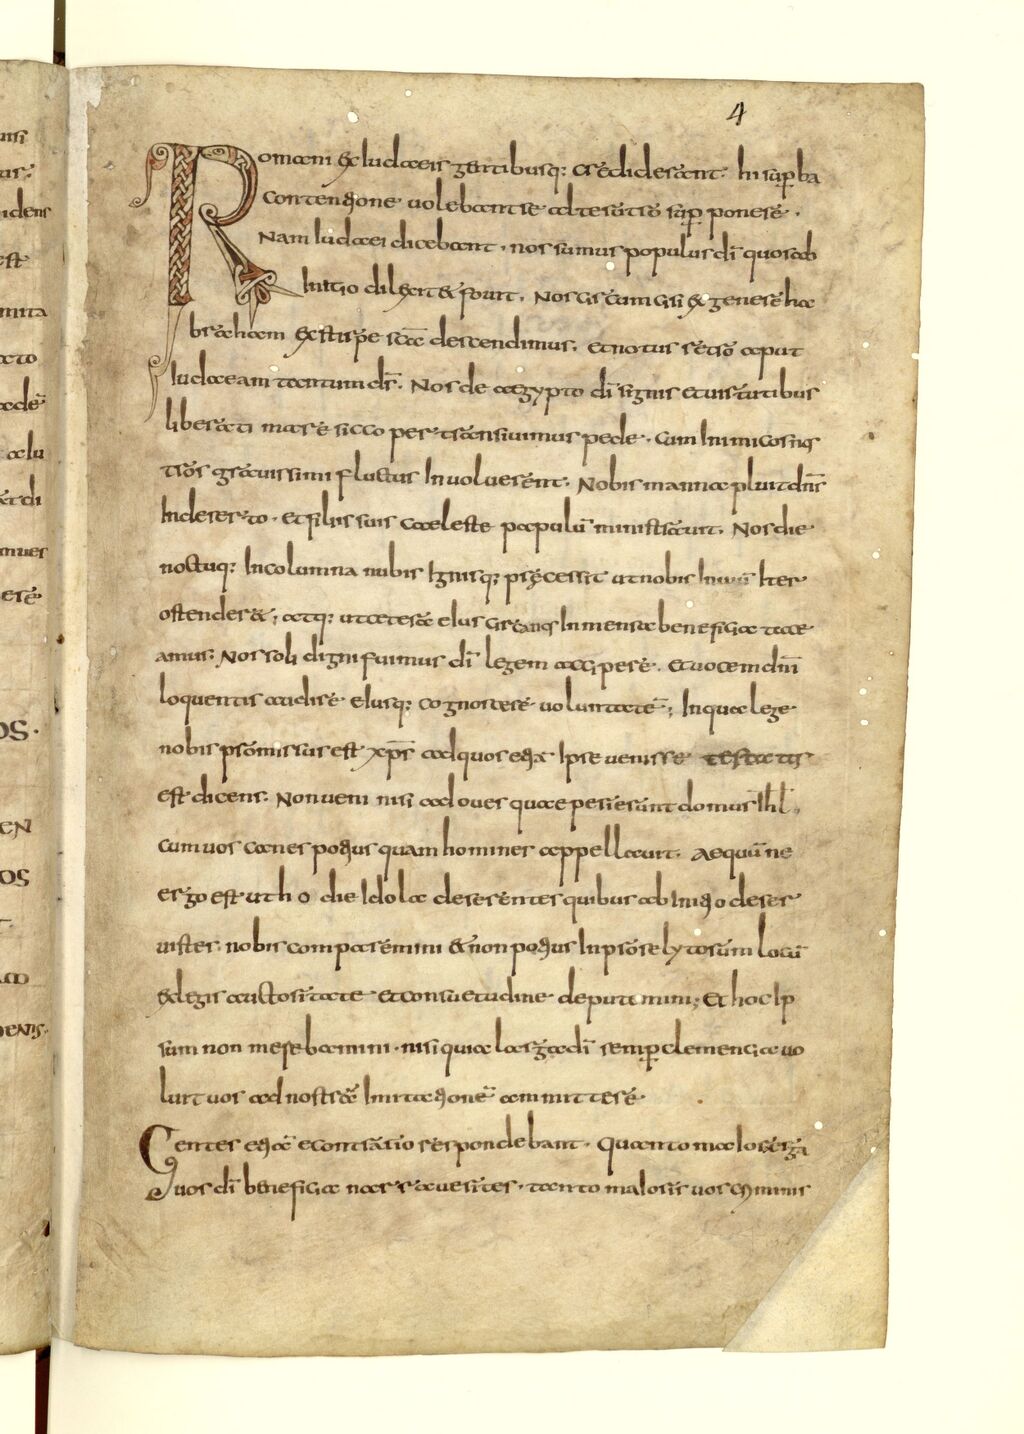 4
Romani ex Iudaeis gentibusq; crediderant. hi sup̱ba
contentione uolebant se alterutro sup̱ponere.
Nam Iudaei dicebant. nos sumus populus dī quos ab
Initio dilexit & fouit. Nos circumcisi ex genere ha
brahaem ex stirpe sc̄a descendimus. et notus retro aput
Iudaeam tantum dš. Nos de aegypto dī signis et uirtutibus
liberati mare sicco per transiuimus pede. Cum Inimicos nos
tros grauissimi fluctus Inuoluerent. Nobis manna pluit dn̄s
In deserto. et filiis suis caeleste papulū ministrauit. Nos die
noctuq; In columna nubis Ignisq; precessit ut nobis Inuiū Iter
ostender&; atq; ut cetera eius circa nos Inmensa beneficia tace
amus. Nos soli digni fuimus dī legem accipere. et uocem dn̄i
loquentis audire eiusq; cognoscere uoluntatē; In qua lege
nobis promissus est xp̄s ad quos etiā Ipse uenisse testatus
est dicens. Non ueni nisi ad oues quae perierunt domus Ihl̄.
Cum uos canes potius quam homines appellauit. Aequū ne
ergo est ut h o die Idola deserentes quibus ab Initio deser
uistis. nobis comparemini & non potius In proselytorum locū
ex legis auctoritate et consuetudine deputemini; Et hoc Ip
sum non merebamini. nisi quia larga dī semp̱ clementia uo
luit uos ad nostrā Imitationē ammittere.
Gentes etiā e contrario respondebant. Quanto maiora erga
uos dī beneficia narraueritis. tanto maioris uos criminis